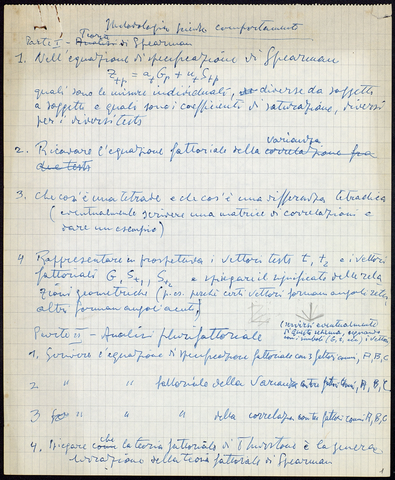 Metodologia scienze comportamento
Parte I - Teoria di Spearman
1. Nell'equazione di specificazione di Spearman
Ztp = at Gp + ut Stp
quali sono le misure individuali, diverse da soggetto
a soggetto e quali sono i coefficienti di saturazione, diversi
per i diversi tests
2. Ricavare l'equazione fattoriale della varianza
correlazione fra
due tests
3. che cos'è una tetrade e che cos'è una differenza tetradica
(eventualmente scrivere una matrice di correlazioni e
dare un esempio)
4 Rappresentare in prospettiva i vettori tests t1 t2 e i vettori
fattoriali G, St1, St2 e spiegare il significato delle rela
zioni geometriche (p. es. perché certi vettori formano angoli retti,
altri formano angoli acuti)
(servirsi eventualmente
di questo schema,
simboli (G, s, ) i vettori
Parte II - Analisi plurifattoriale
1. Scrivere l'equazione di specificazione fattoriale con 3 fattori comuni, A, B, C
2 " " fattoriale della Varianza con tre fattori comuni, A, B, C
3 " " " della correlazione con tre fattori comuni A, B, C
4. Spiegare che la teoria fattoriale di Thurstone è la genera
lizzazione della teoria fattoriale di Spearman
1